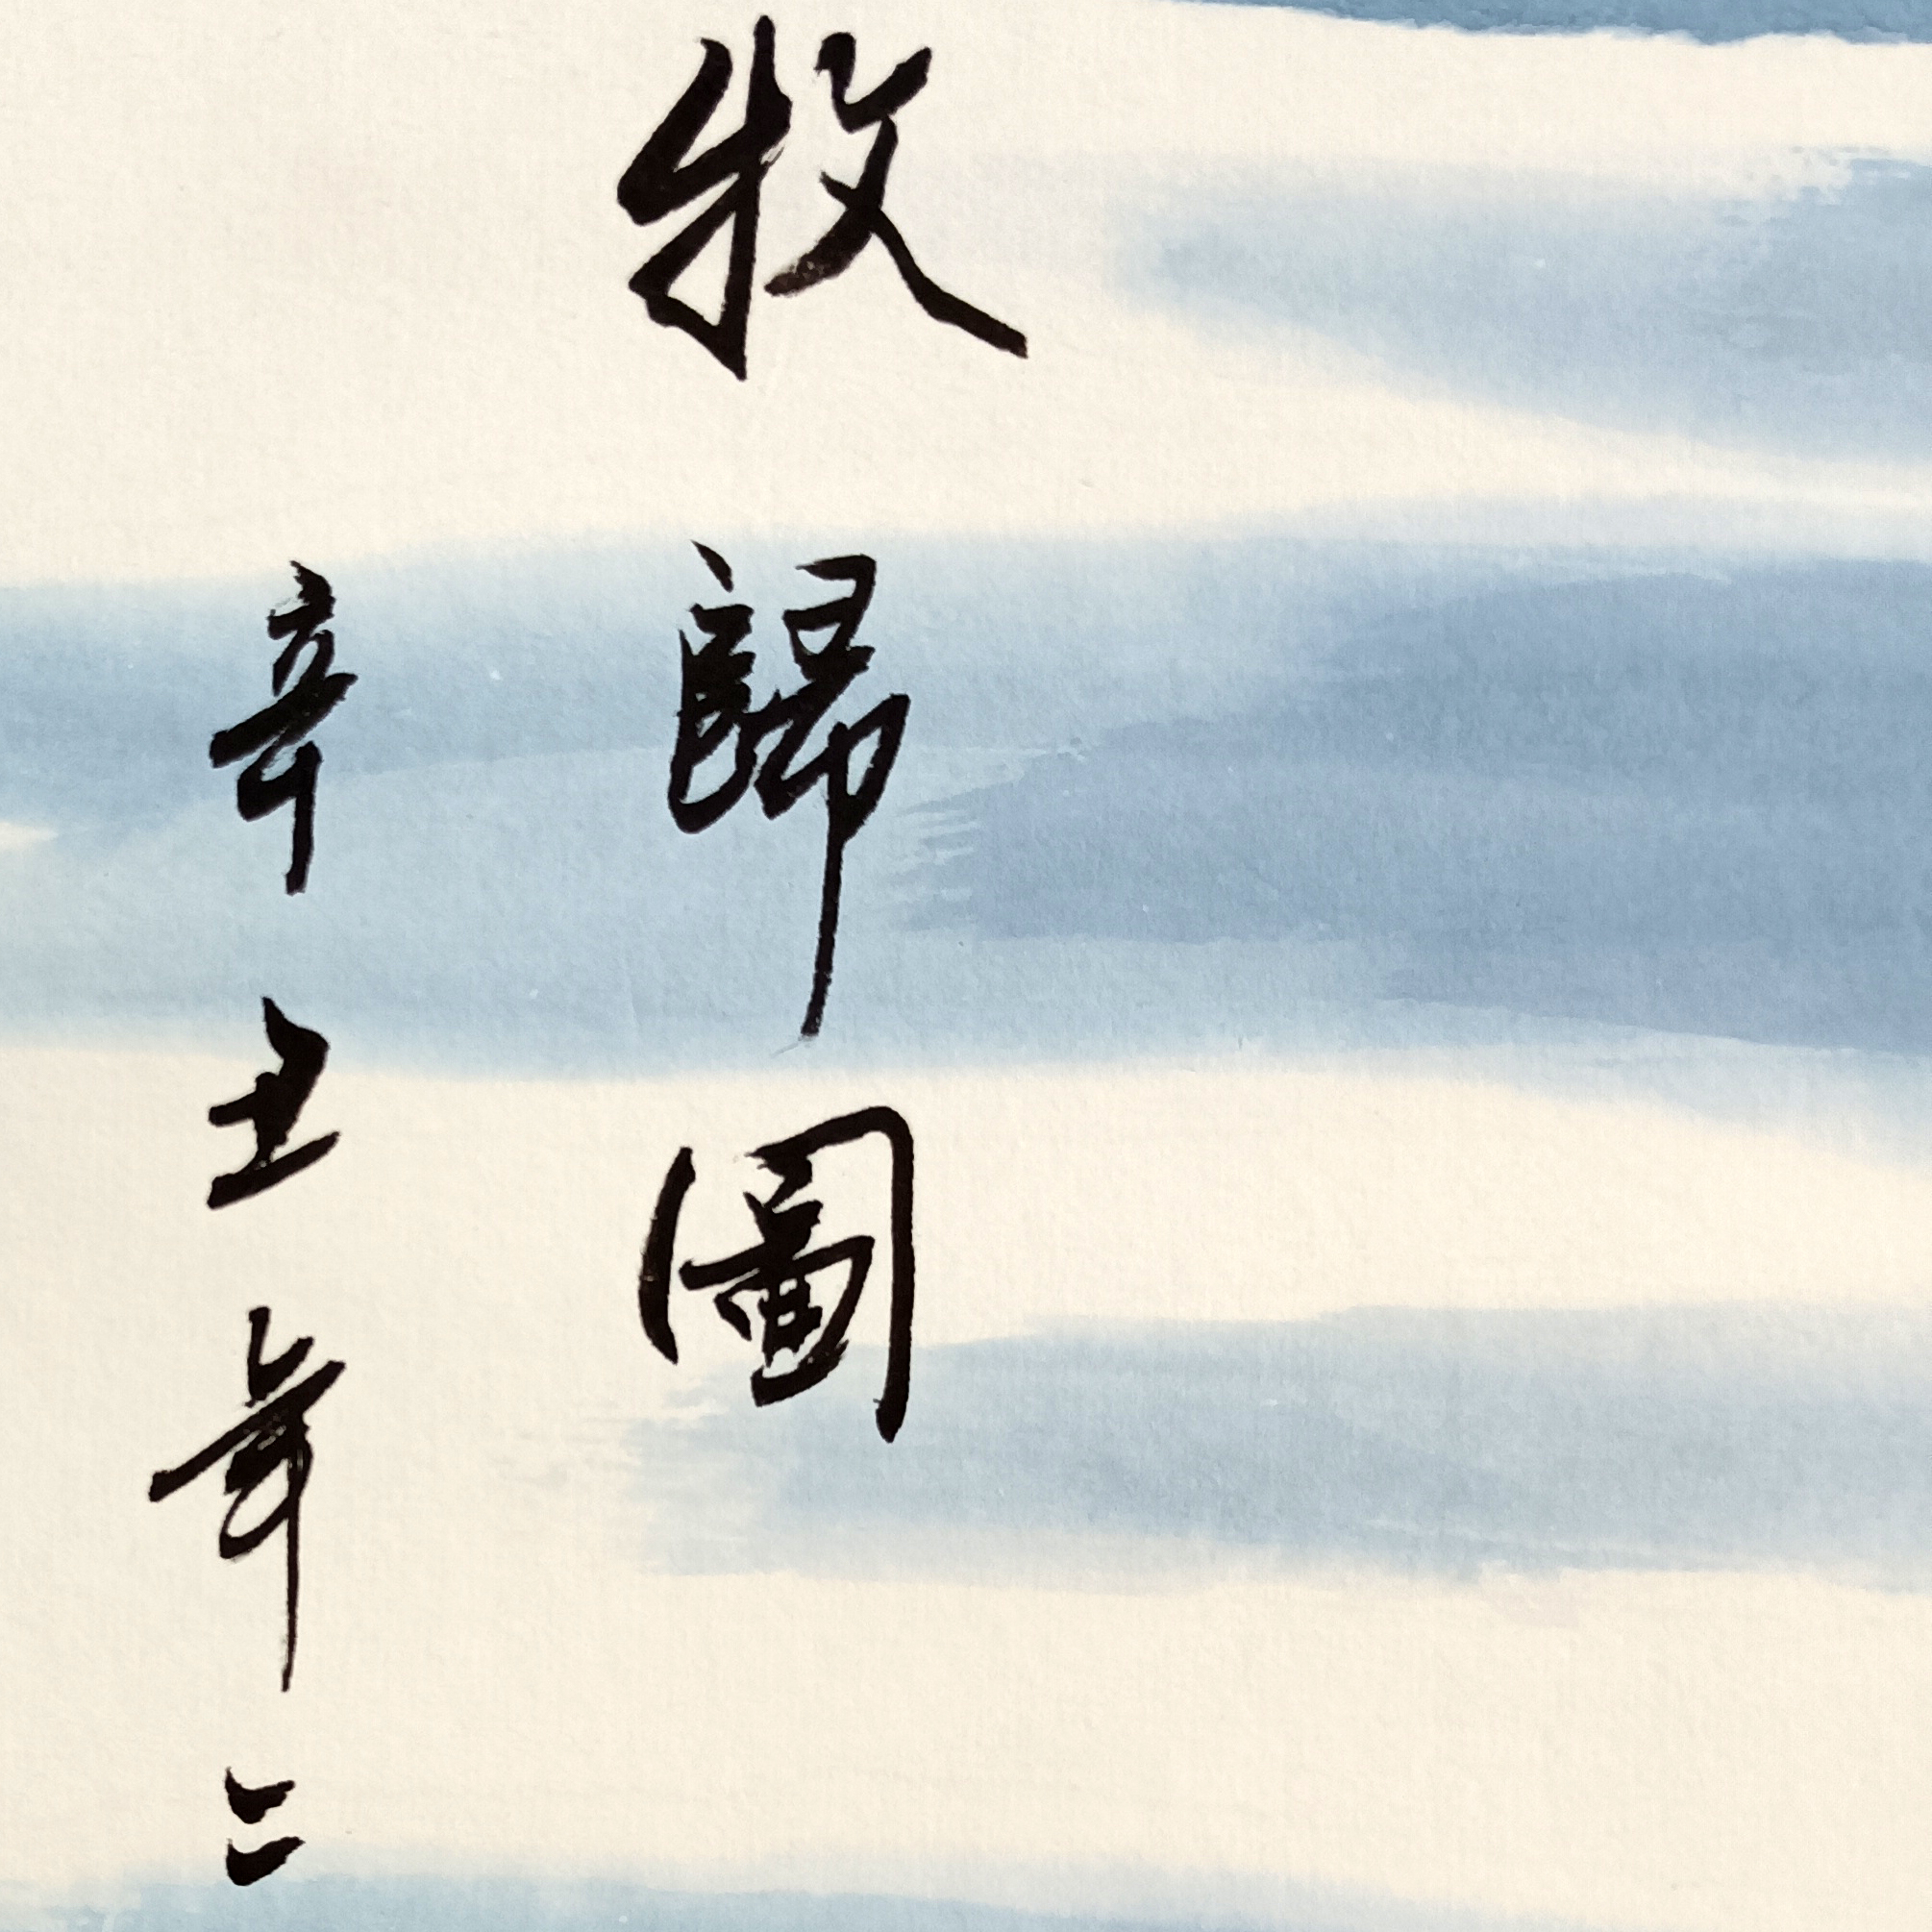 牧歸圖
辛丑年二